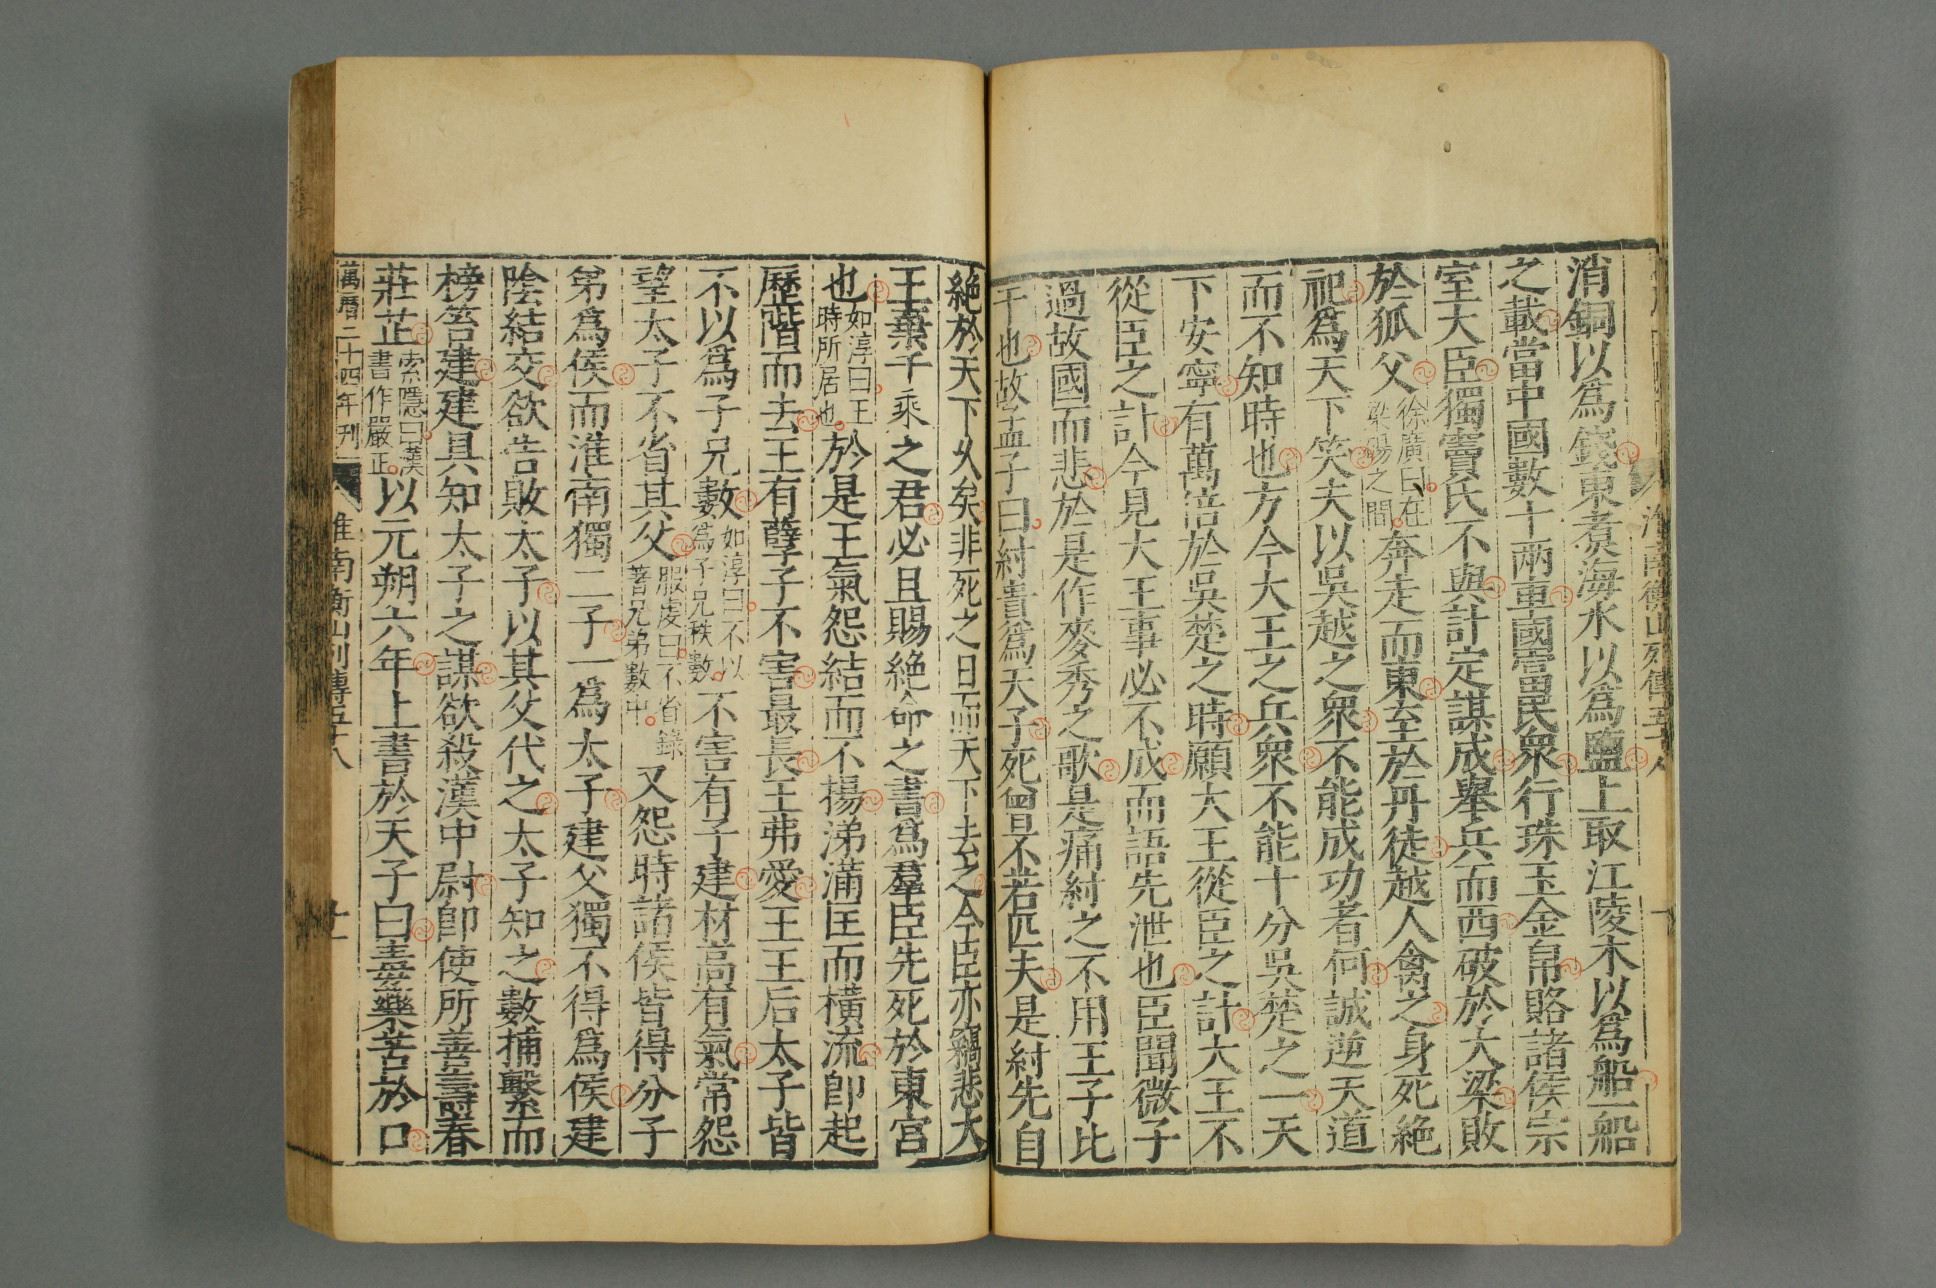 消銅以爲錢東煮海水以爲鹽上取江陵木以爲船一船
之載當中國數十兩車國富民衆行珠玉金帛賂諸侯宗
室大臣獨竇氏不與計定謀成舉兵而西破於大梁敗
於狐父徐廣曰在梁碭之間奔走而東至於丹徒越人禽之身死絶
祀爲天下笑夫以吳越之衆不能成功者何誠逆天道
而不知時也方今大王之兵衆不能十分吳楚之一天
下安寧有萬倍於吳楚之時願大王從臣之計大王不
從臣之計今見大王事必不成而語先泄也臣聞微子
過故國而悲於是作麥秀之歌是痛紂之不用王子比
干也故孟子曰紂貴爲天子死曾不若匹夫是紂先自
絶於天下久矣非死之日而天下去之今臣亦竊悲大
王棄千乘之君必且賜絶命之書爲羣臣先死於東宮
也如淳曰王時所居也於是王氣怨結而不揚涕滿匡而橫流卽起
歷階而去王有孽子不害最長王弗愛王王后太子皆
不以爲子兄數如淳曰不以爲子兄秩數不害有子建材高有氣常怨
望太子不省其父服虔曰不省錄著兄弟數中又怨時諸侯皆得分子
弟爲侯而淮南獨二子一爲太子建父獨不得爲侯建
陰結交欲告敗太子以其父代之太子知之數捕繫而
榜笞建建具知太子之謀欲殺漢中尉卽使所善壽春
莊芷索隱曰漢書作嚴正以元朔六年上書於天子曰毒藥苦於口
萬曆二十四年刊 淮南衡山列傳五十八 十一